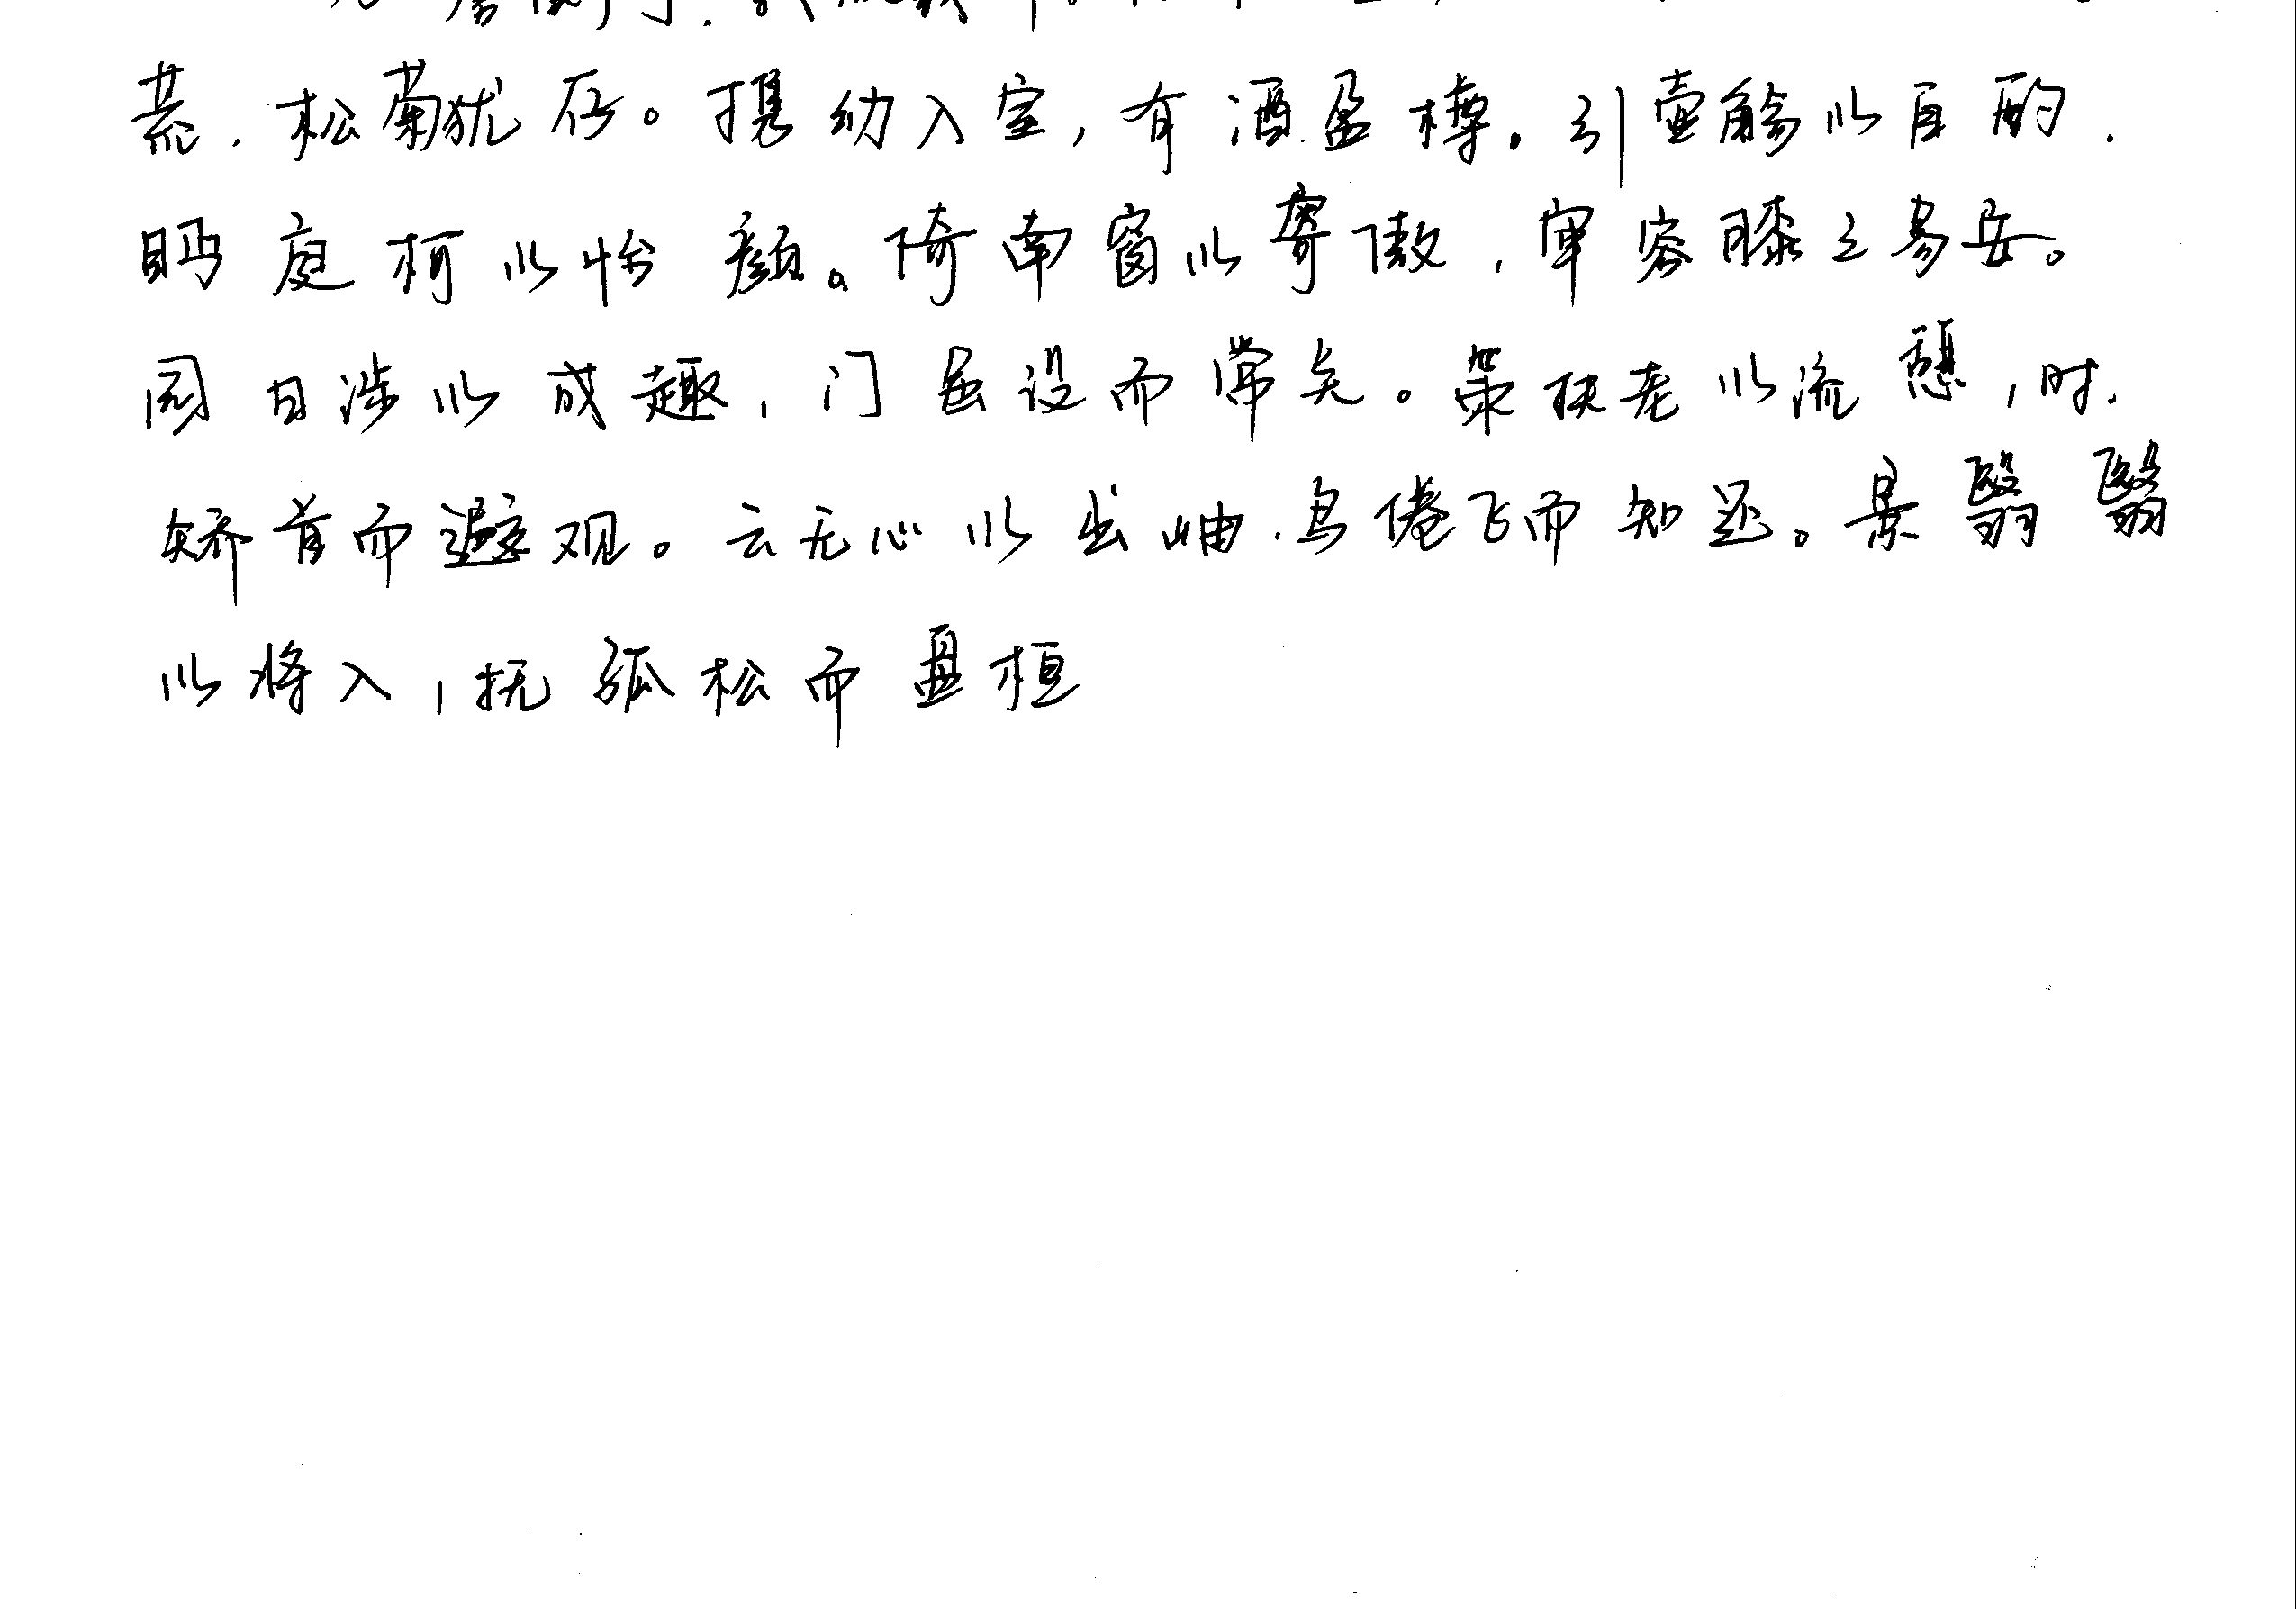 荒，松菊犹存。携幼入室，有酒盈樽。引壶觞以自酌，
眄庭柯以怡颜。倚南窗以寄傲，审容膝之易安。
园日涉以成趣，门虽设而常关。策扶老以流憩，时，
矫首而遐观。云无心以出岫，鸟倦飞而知还。景翳翳
以将入，抚孤松而盘桓